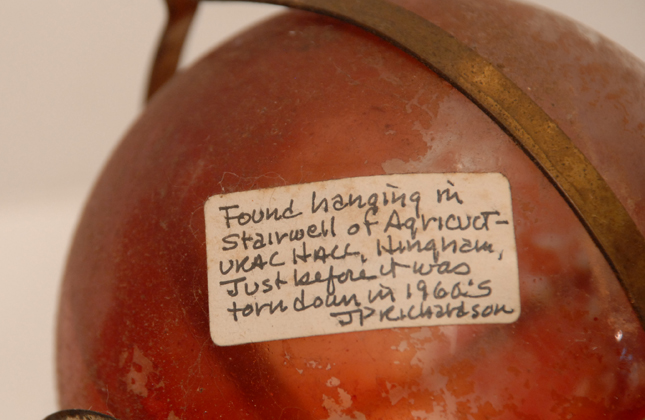 Found hanging in
Stairwell of Agricult-
URAL HALL, Hingham,
Just before it was
torn down in 1960's
JPRichardson